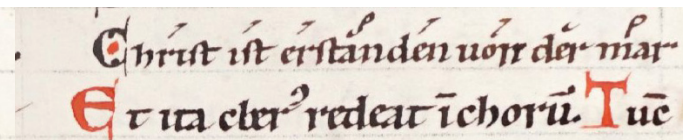 Christ ist erstanden uon der mar
Et ita clerꝰ redeat īchorū. Tuc̄